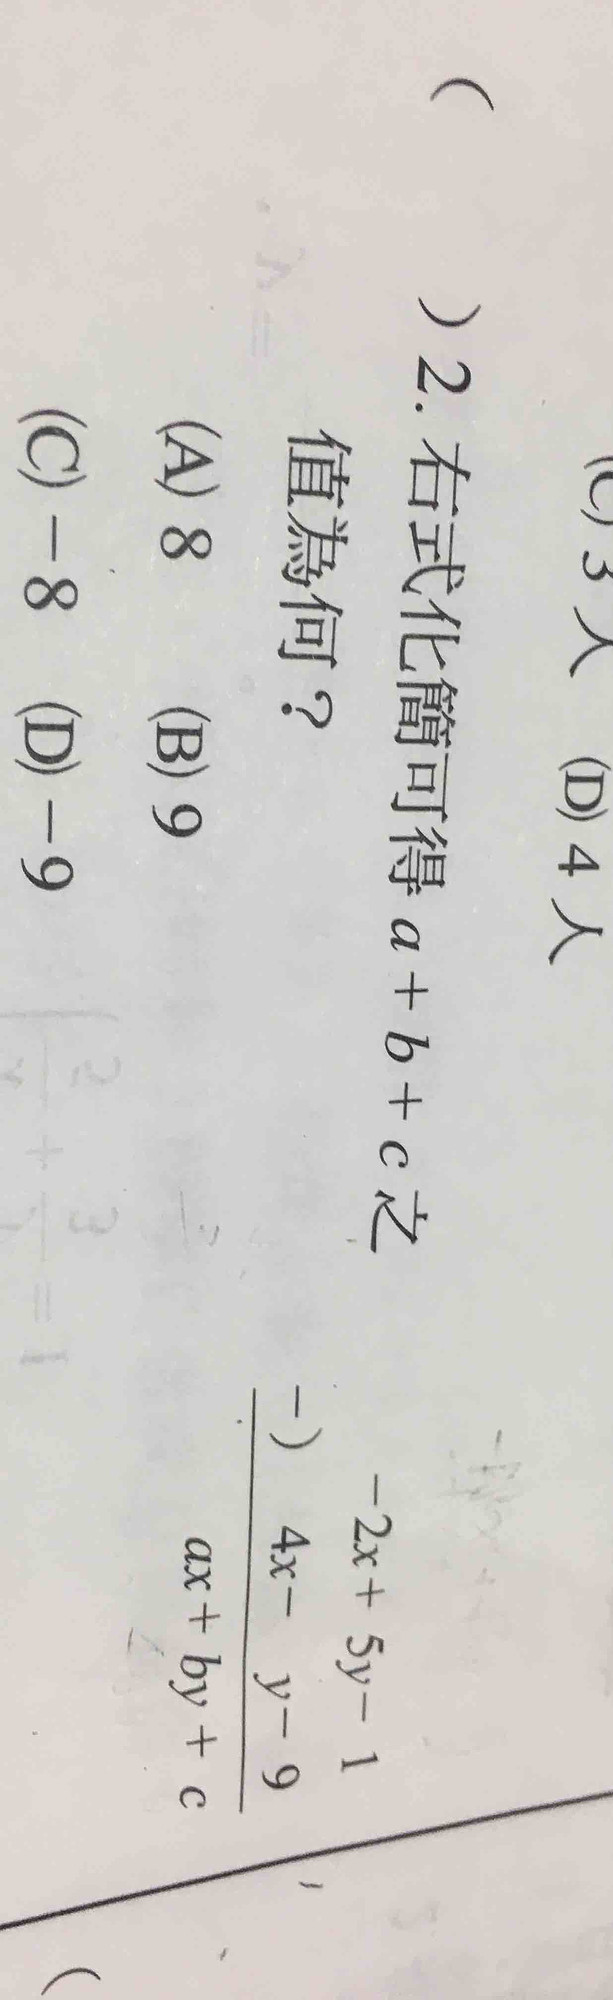 (C) 3 人 (D) 4 人
( ) 2. 右式化簡可得 a + b + c 之
值為何？
(A) 8 (B) 9
(C) －8 (D) －9
－2x + 5y－1
－) 4x－ y－9
ax + by + c
(